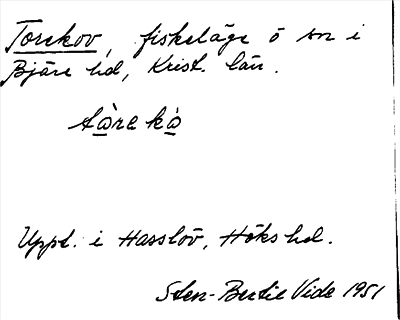 Torekov, fiskeläge o sn i
Bjäre hd, Krist. län.
tàrekà
Uppt. i Hasslöv, Höks hd.
Sten-Bertil Vide 1951